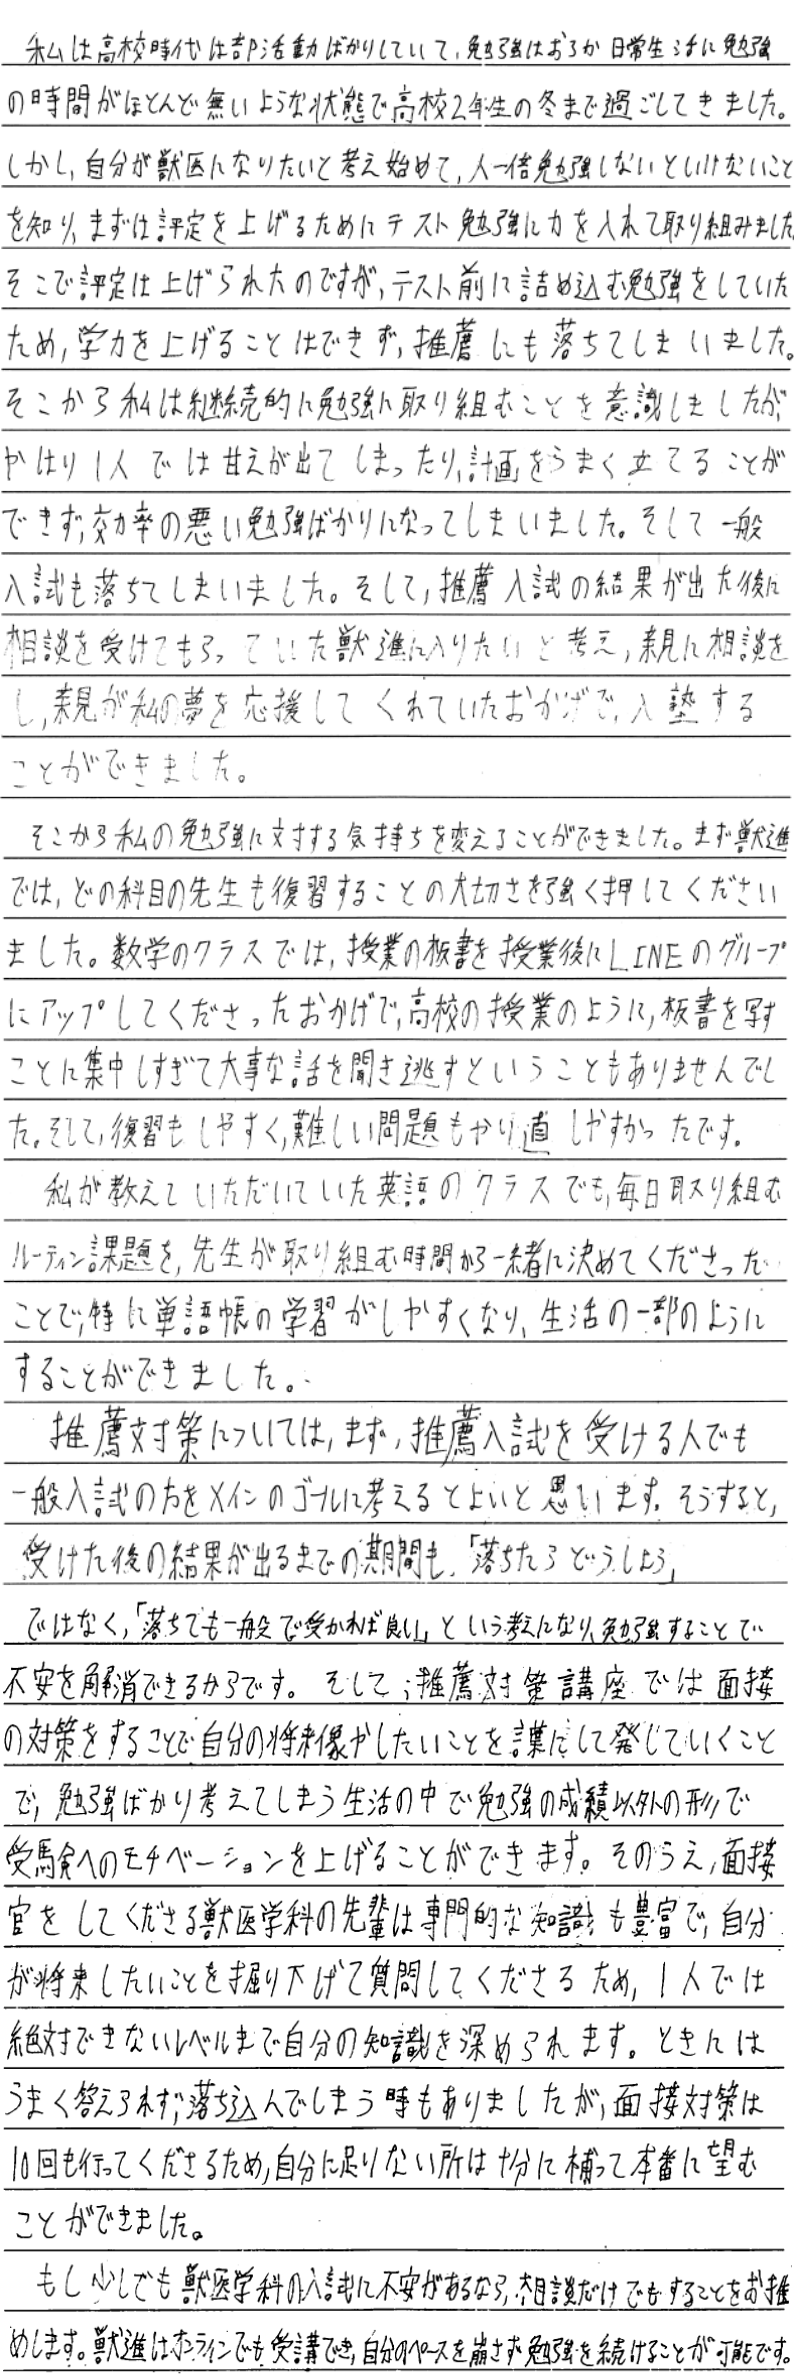 私は高校時代は部活動ばかりしていて、勉強はおろか日常生活に勉強
の時間がほとんど無いような状態で高校2年生の冬まで過ごしてきました。
しかし、自分が獣医になりたいと考え始めて、人一倍勉強しないといけないこと
を知り、まずは評定を上げるためにテスト勉強に力を入れて取り組みました
そこで評定は上げられたのですが、テスト前に詰め込む勉強をしていた
ため、学力を上げることはできず、推薦にも落ちてしまいました。
そこから私は継続的に勉強に取り組むことを意識しましたが、
やはり1人では甘えが出てしまったり、計画をうまく立てることが
できず、効率の悪い勉強ばかりになってしまいました。そして一般
入試も落ちてしまいました。そして、推薦入試の結果が出た後に
相談を受けてもらっていた獣進に入りたいと考え、親に相談を
し、親が私の夢を応援してくれていたおかげで、入塾する
ことができました。
そこから私の勉強に対する気持ちを変えることができました。まず獣進
では、どの科目の先生も復習することの大切さを強く押してください
ました。数学のクラスでは、授業の板書を授業後にLINEのグループ
にアップしてくださったおかげで、高校の授業のように、板書を写す
ことに集中しすぎて大事な話を聞き逃すということもありませんでし
た。そして、復習もしやすく、難しい問題もやり直しやすかったです。
私が教えていただいていた英語のクラスでも、毎日取り組む
ルーティン課題を、先生が取り組む時間から一緒に決めてくださった
ことで、特に単語帳の学習がしやすくなり、生活の一部のように
することができました。
推薦対策については、まず、推薦入試を受ける人でも
一般入試の方をメインのゴールに考えるとよいと思います。そうすると、
受けた後の結果が出るまでの期間も、「落ちたらどうしよう」
ではなく、「落ちても一般で受かれば良い」という考えになり、勉強することで
不安を解消できるからです。そして、推薦対策講座では面接
の対策をすることで自分の将来像やしたいことを言葉にして発していくこと
で、勉強ばかり考えてしまう生活の中で勉強の成績以外の形で
受験へのモチベーションを上げることができます。そのうえ、面接
官をしてくださる獣医学科の先輩は専門的な知識も豊富で、自分
が将来したいことを掘り下げて質問してくださるため、1人では
絶対できないレベルまで自分の知識を深められます。ときには
うまく答えられず、落ち込んでしまう時もありましたが、面接対策は
10回も行ってくださるため、自分に足りない所は十分に補って本番に望む
ことができました。
もし少しでも獣医学科の入試に不安があるなら、相談だけでもすることをお推
めします。獣進はオンラインでも受講でき、自分のペースを崩さず勉強を続けることが可能です。